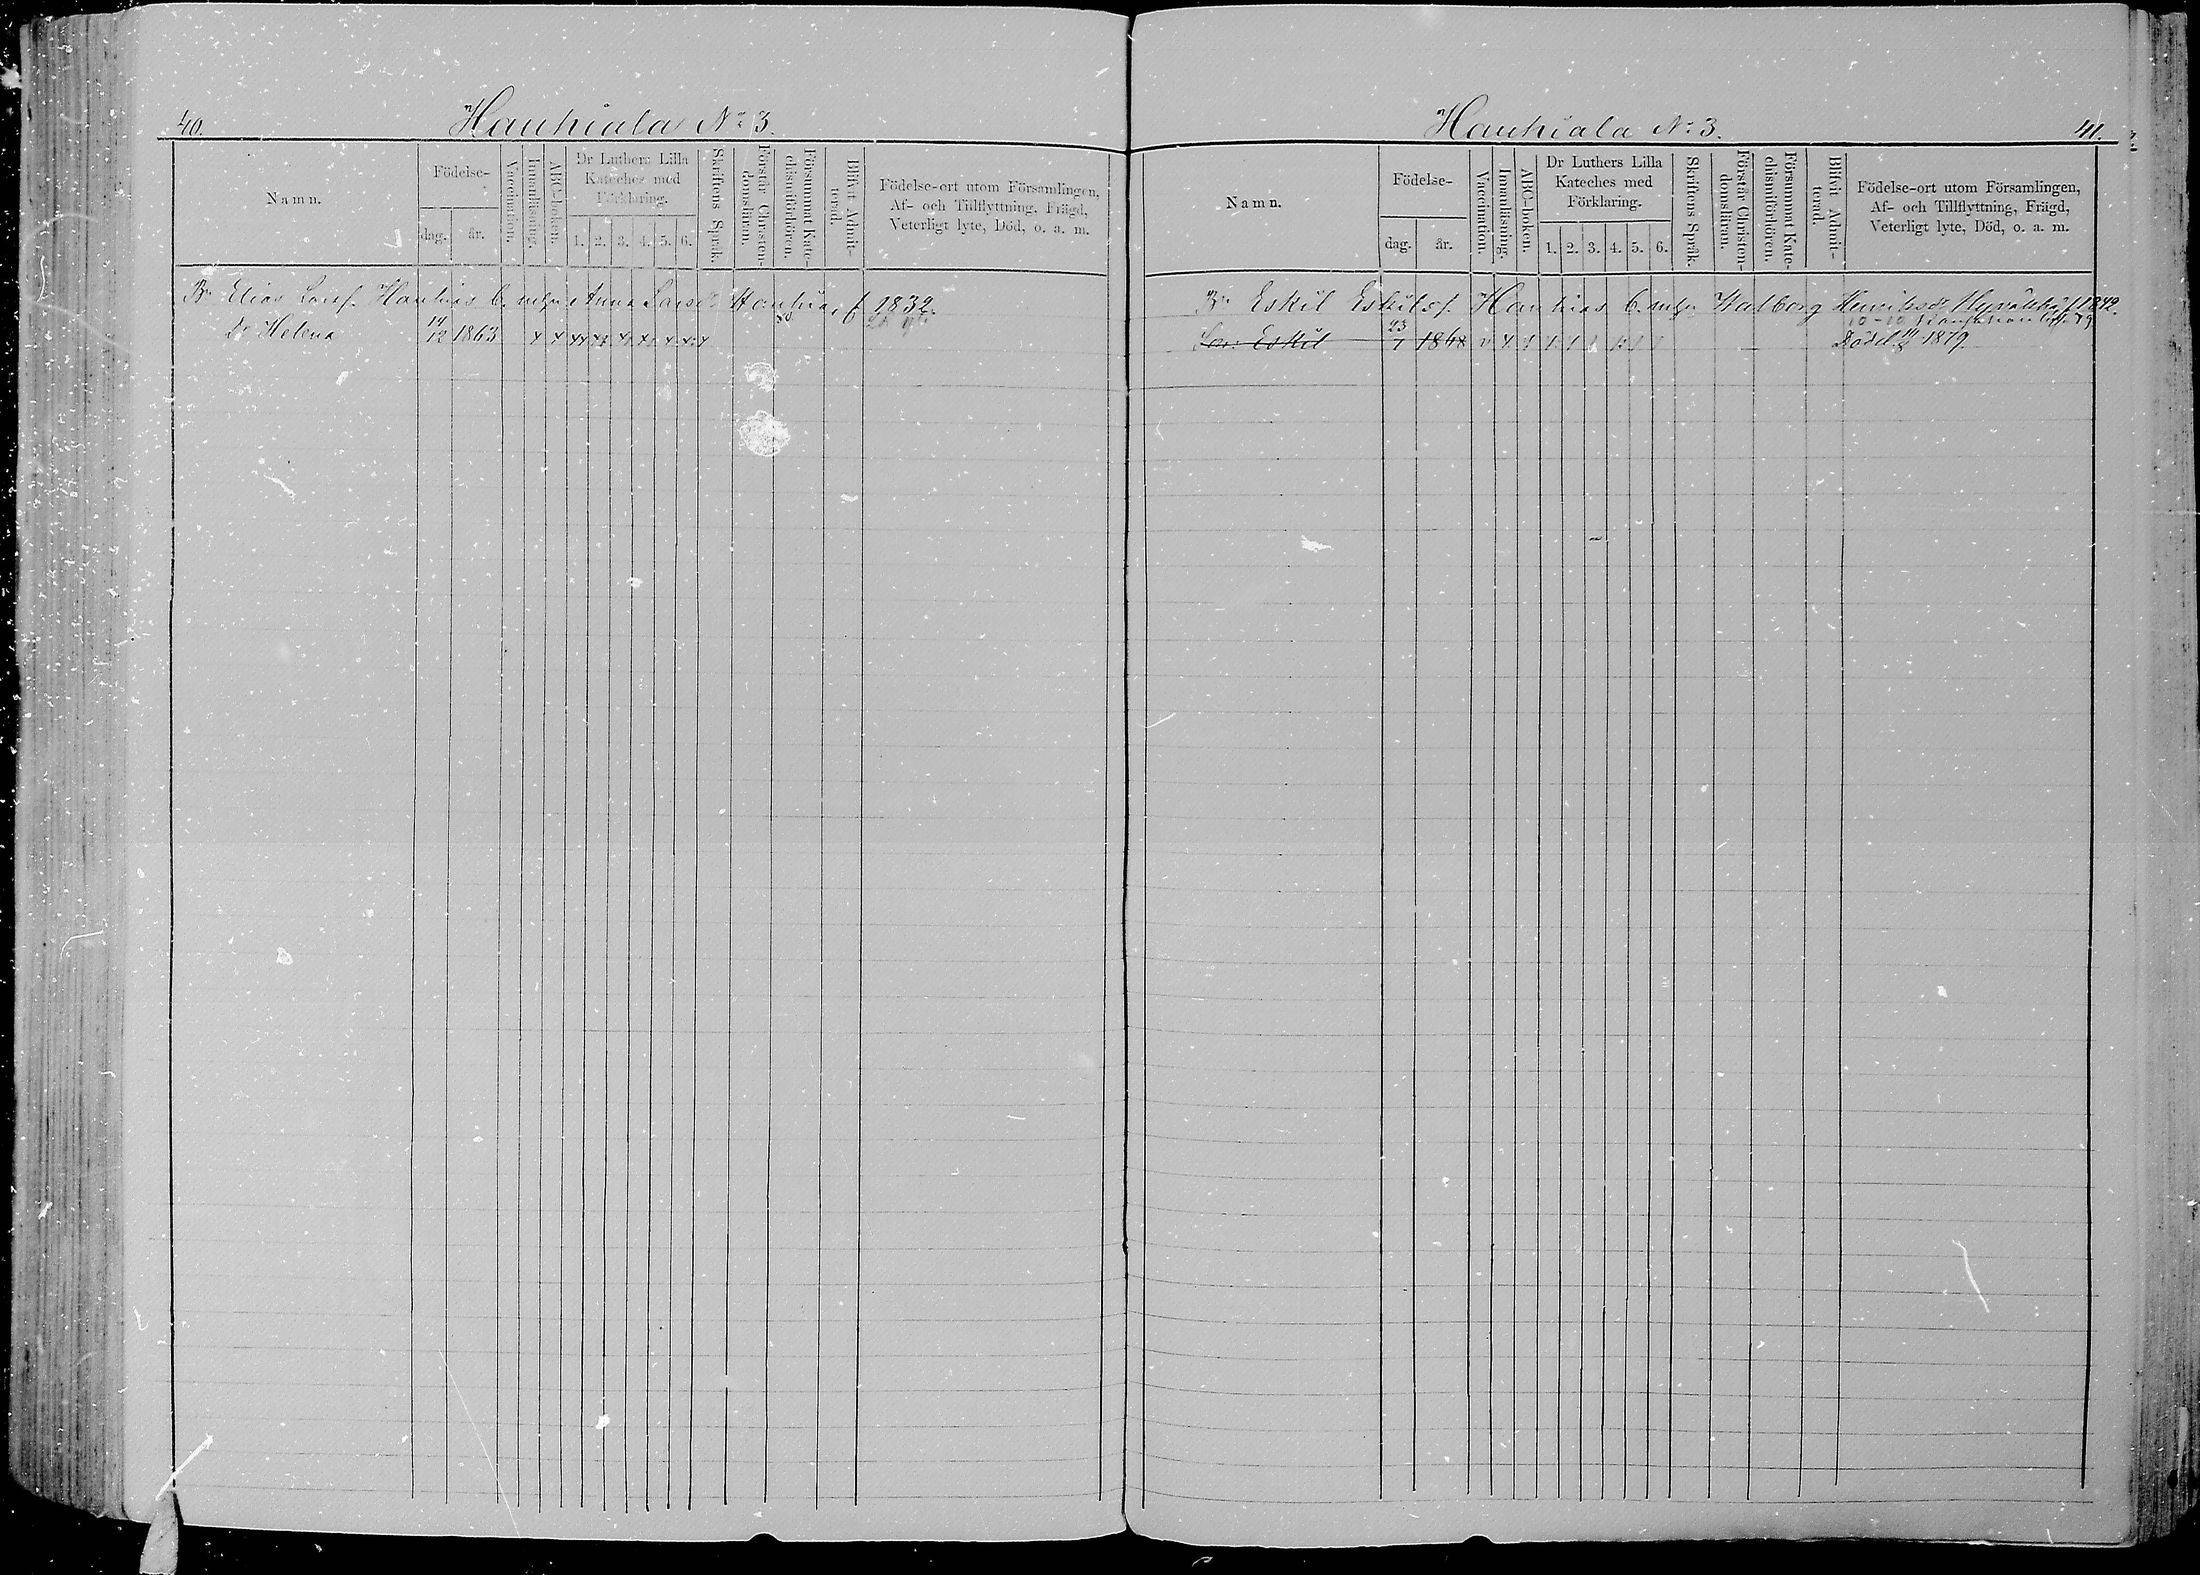 40.
Hauhiala No 3.
Namn.
Födelse-
dag.
år.
Vaccination.
Innanläsning.
ABC-boken.
Dr Luthers Lilla
Kateches med
Förklaring.
1. 2. 3. 4. 5. 6.
Skriftens Språk.
Förstår Christen-
domsläran.
Försummat Kate-
chismiförhören.
Blifvit Admit-
terad.
Födelse-ort utom Församlingen,
Af- och Tillflyttning, Frägd,
Veterligt lyte, Död, o. a. m.
Bn Elias Larsf. Hauhias o. Anna Larsdr Hauhia, f. 1832.
dr Helena 14/12 1863
Hauhiala No 3.
41.
Namn.
Födelse-
dag.
år.
Vaccination.
Innanläsning.
ABC-boken.
Dr Luthers Lilla
Kateches med
Förklaring.
1. 2. 3. 4. 5. 6.
Skriftens Språk.
Förstår Christen-
domsläran.
Försummat Kate-
chismiförhören.
Blifvit Admit-
terad.
Födelse-ort utom Församlingen,
Af- och Tillflyttning, Frägd,
Veterligt lyte, Död, o. a. m.
Bn Eskil Eskilsf. Hauhias Walborg Henriksdr 1842.
Son: Eskil 23/7 1868 Död 1879.